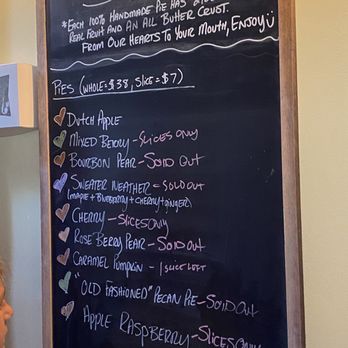 *Each 100% Handmade Pie Has 2 lbs of
Real Fruit and An All Butter Crust.
From Our Hearts To Your Mouth, Enjoy
Pies (whole=$38, slice=$7)
Dutch Apple
Mixed Berry - Slices Only
Bourbon Pear - Sold Out
Sweater Weather = Sold Out
(maple + Blueberry + cherry + ginger)
Cherry - Slices Only
Rose Berry Pear - Sold Out
Caramel Pumpkin - 1 slice left
"Old Fashioned" Pecan Pie - Sold Out
Apple Raspberry - Slices Only